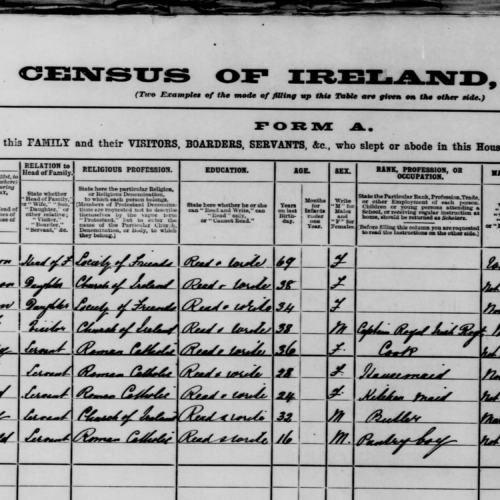 CENSUS OF IRELAND,
(Two Examples of the mode of filling up this Table are given on the other side.)
FORM A.
this FAMILY and their VISITORS, BOARDERS, SERVANTS, &c., who slept or abode in this Hous
RELATION to Head of Family. RELIGIOUS PROFESSION. EDUCATION. AGE. SEX. RANK, PROFESSION, OR OCCUPATION.
State whether "Head of Family," or "Wife," "Son," "Daughter," or other relative; "Visitor," "Boarder," "Servant," &c.
State here the particular Religion, or Religious Denomination, to which each person belongs.
[Members of Protestant Denominations are requested not to describe themselves by the vague term "Protestant," but to enter the name of the Particular Church, Denomination, or Body, to which they belong.]
State here whether he or she can "Read and Write," can "Read" only, or "Cannot Read."
Years on last Birthday.
Months for Infants under one Year.
Write "M" for Males and "F" for Females.
State the Particular Rank, Profession, Trade, or other Employment of each person. Children or young persons attending a School, or receiving regular instruction at home, should be returned as Scholars.
[Before filling this column you are requested to read the Instructions on the other side.]
Head of F Society of Friends Read & write 69 F
Daughter Church of Ireland Read & write 38 F
Daughter Society of Friends Read & write 34 F
Visitor Church of Ireland Read & write 38 M Captain Royal
Servant Roman Catholic Read & write 36 F Cook
Servant Roman Catholic Read & write 28 F Housemaid
Servant Roman Catholic Read & write 24 F Kitchen maid
Servant Church of Ireland Read & write 32 M Butler
Servant Roman Catholic Read & write 16 M Pantry boy